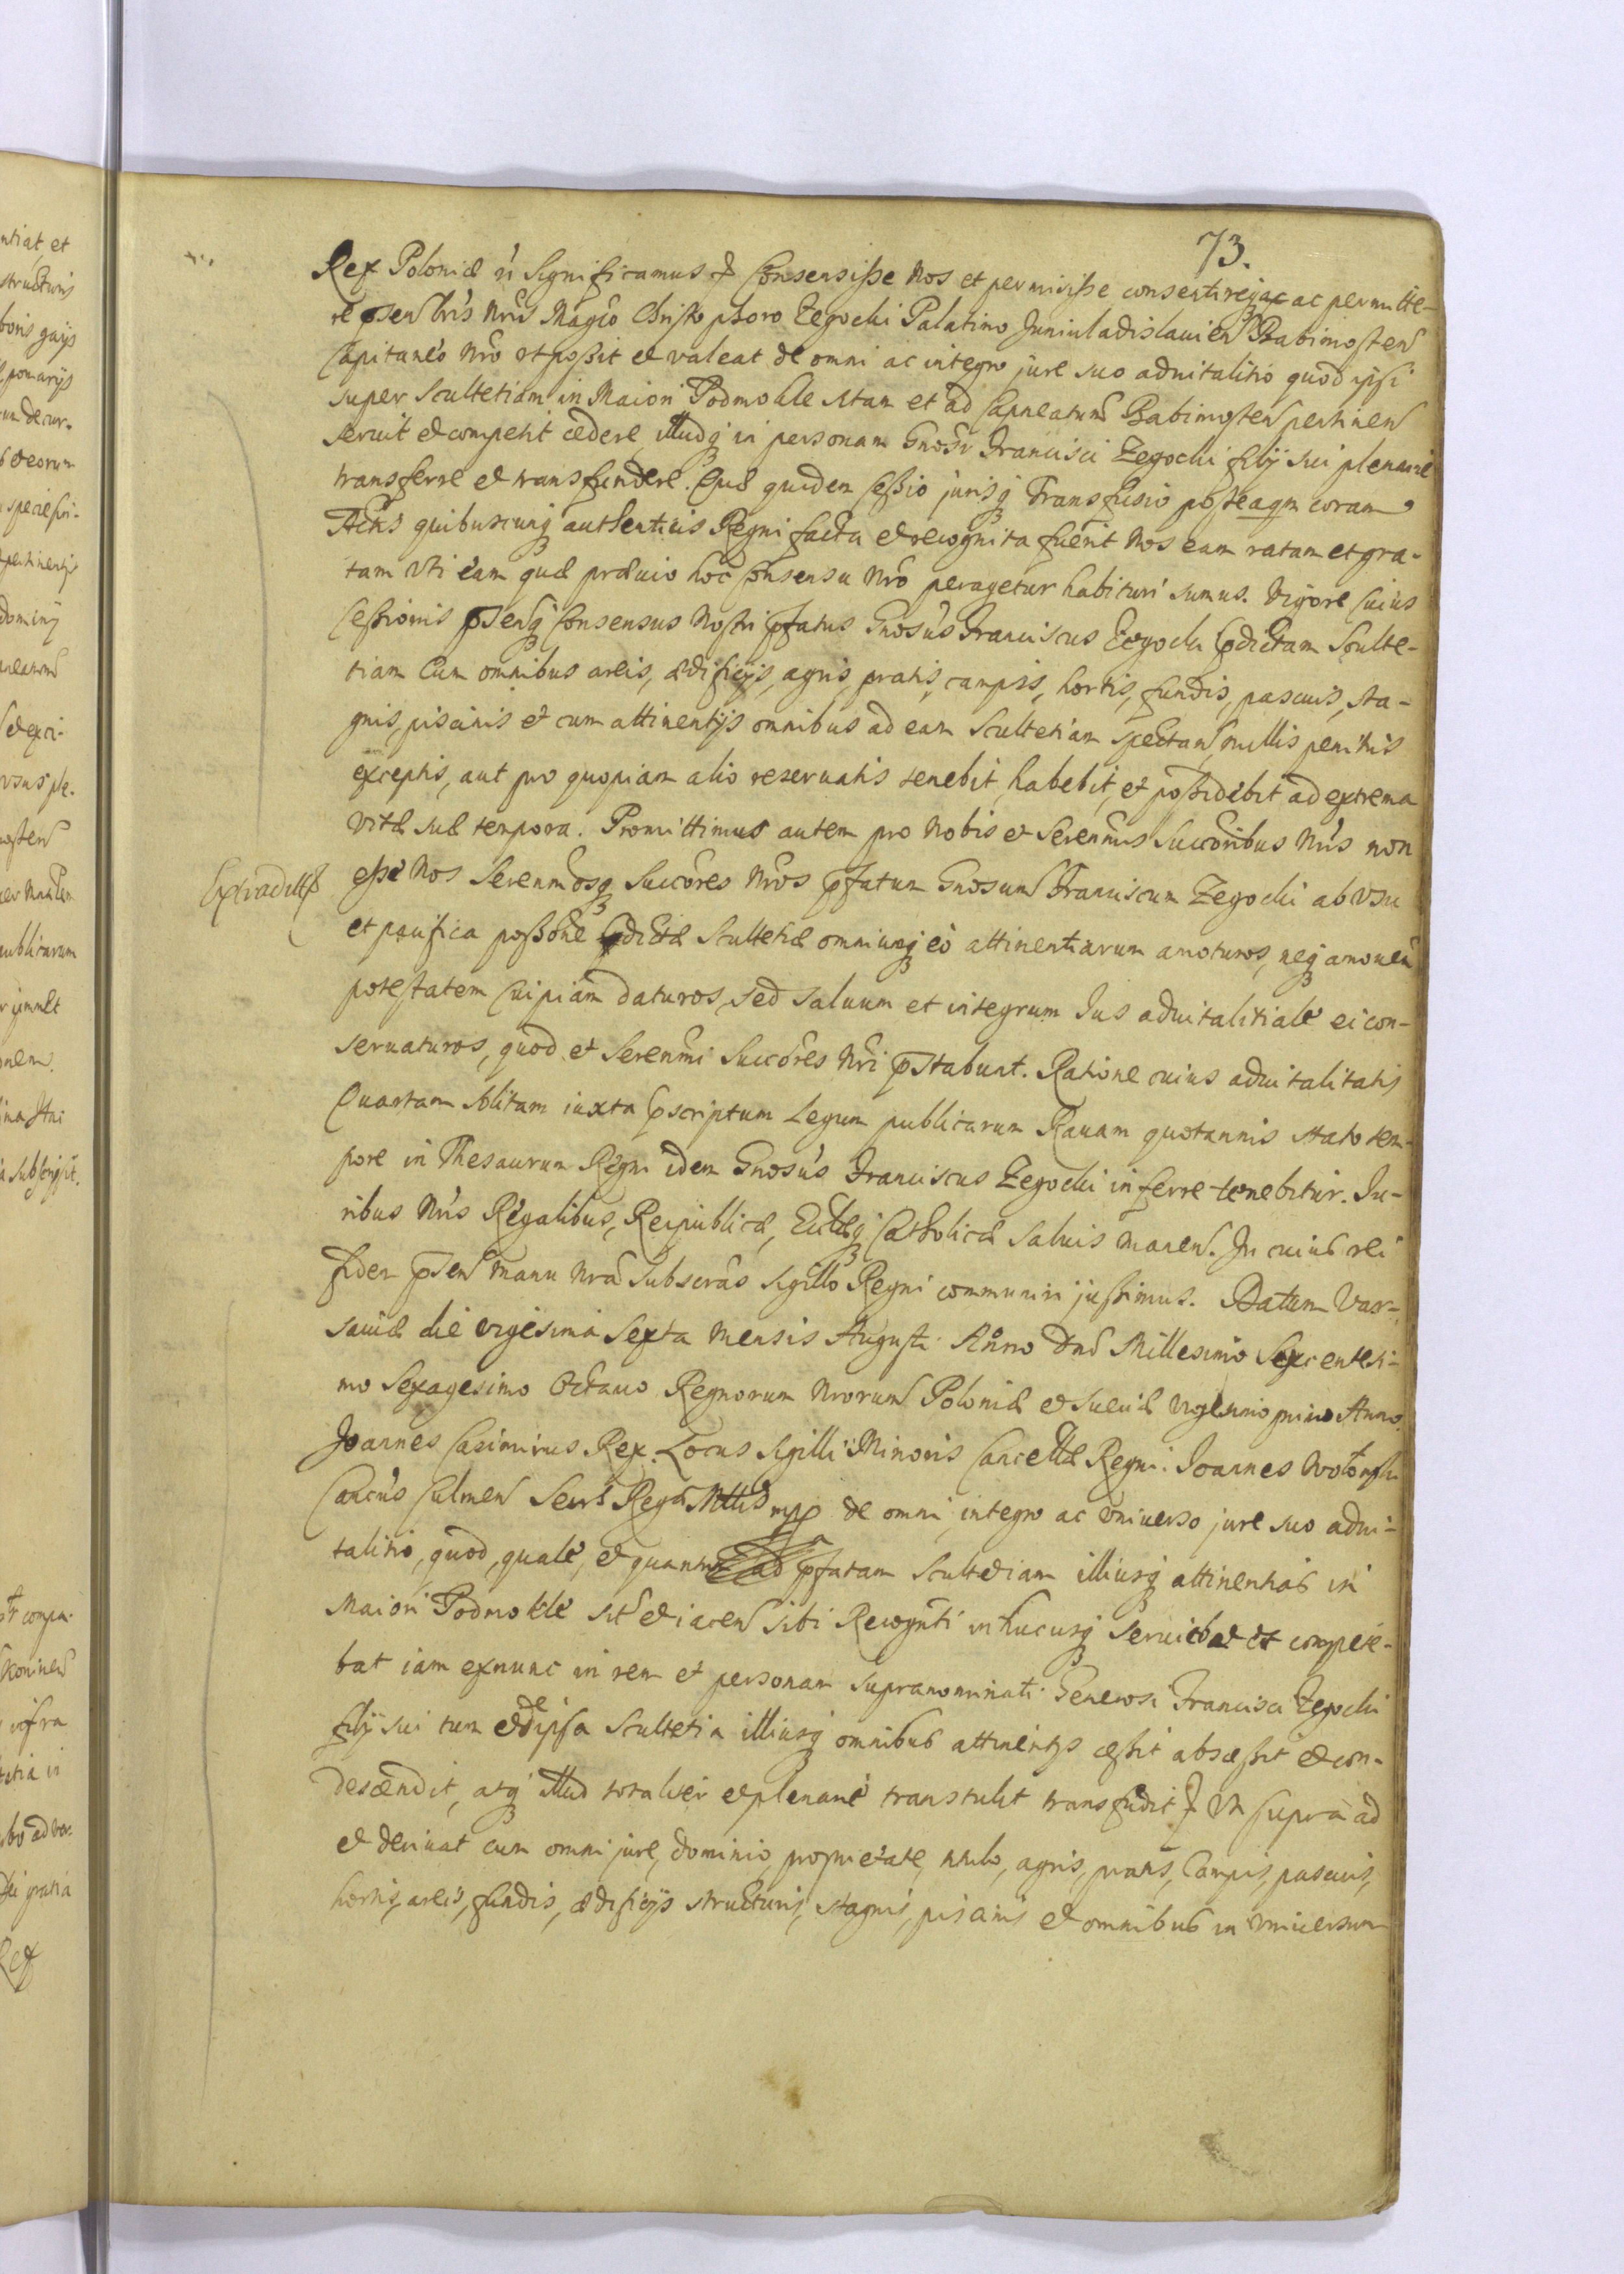 73.
Rex Poloniæ &c Significamus &c Consensisse Nos et permisisse consentireqꝫ ac permitte-
re pñsen lris Nris Magco Christophoro Zegocki Palatino Juniuladislauien Babimosten
Capitaneo Nro ut possit et valeat de omni ac integro jure suo aduitalitio quod ipsi
super Scultetiam in Maiori Podmokle sitam et ad Capneatum Babimosten pertinen
seruit et competit cedere, illudqꝫ in personam Gnosi Francisci Zegocki filij sui plenarie
transferre et transfundere. Quæ quidem Cessio jurisqꝫ Transfusio posteaqm coram
Actis quibuscunqꝫ authenticis Regni facta et recognita fuerit Nos eam ratam et gra-
tam uti eam quæ præuio hoc Consensu Nro peragetur habituri sumus. Vigore cuius
Cessionis pñsenqꝫ Consensus Nostri pfatus Gnosus Franciscus Zegocki pdictam Sculte-
tiam Cum omnibus areis, ædificijs, agris, pratis, campis, hortis, fundis, pascuis, sta-
gnis, piscinis et cum attinentijs omnibus ad eam Scultetiam spectan, nullis penitus
exceptis, aut pro quopiam alio reseruatis tenebit, habebit, et possidebit ad extrema
vitæ suæ tempora. Promittimus autem pro Nobis et Serenmis Succoribus Nris non
esse Nos Serenmosqꝫ Succores Nros pfatum Gnosum Franciscum Zegocki ab usu
et pacifica possone pdictæ Scultetiæ omniumqꝫ eò attinentiarum amoturos, neqꝫ amouen
potestatem cuipiam daturos, sed saluum et integrum Ius aduitalitiale ei con-
seruaturos, quod et Serenmi Succores Nri pstabunt. Ratione cuius aduitalitatis
Quartam solitam iuxta pscriptum Legum publicarum Rauam quotannis stato tem-
pore in Thesaurum Regni idem Gnosus Franciscus Zegocki inferre tenebitur. Iu-
ribus Nris Regalibus, Reipublicæ, Ecclæqꝫ Catholicæ saluis manen. In cuius rei
fidem pñsen manu Nra Subscras sigillo Regni communiri jussimus. Datum Var-
sauiæ die vigesima sexta Mensis Augusti Anno Dni Millesimo Sexcentesi-
mo Sexagesimo Octauo Regnorum Nrorum Poloniæ et Sueciæ Vigesimo primo Anno.
Joannes Casimirus Rex. Locus Sigilli Minoris Cancellæ Regni. Ioannes
Cancus Culmen Secrs Regæ Mttis mpp de omni, integro ac vniuerso jure suo adui-
talitio, quod, quale, et quantum ad pfatam Scultetiam illiusqꝫ attinentias in
Maiori Podmokle sit et iacen sibi Recognti in hucusqꝫ seruiebat et compete-
bat iam exnunc in rem et personam supranominati Generosi Francisci Zegocki
filij sui tum et de ipsa Scultetia illiusqꝫ omnibus attinentijs cessit abscessit et con-
descendit, atqꝫ illud totaliter et plenarie transtulit transfudit &c Vt supra ad
et deriuat cum omni jure, dominio, proprietate, titulo, agris, pratis, Campis, pascuis,
hortis, areis, fundis, ædificijs structuris, stagnis, piscinis et omnibus in vniuersum